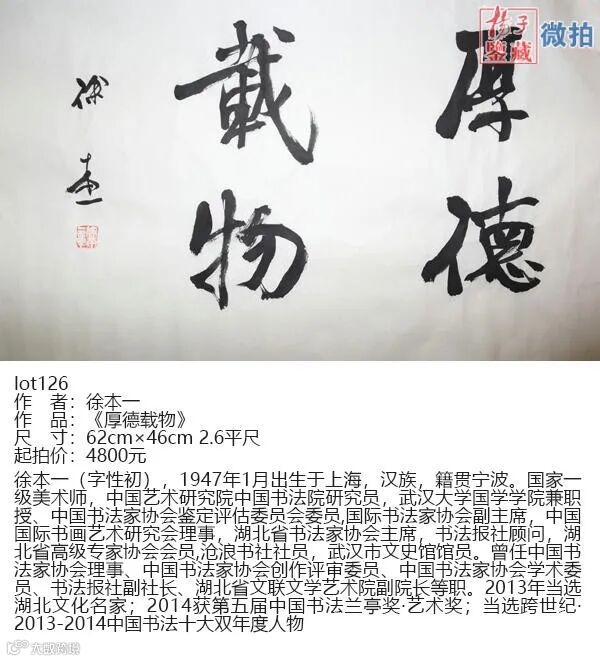 揚子
鑒藏
微拍
厚德
載物
徐本一
lot126
作 者：徐本一
作 品：《厚德载物》
尺 寸：62cm×46cm 2.6平尺
起拍价：4800元
徐本一（字性初），1947年1月出生于上海，汉族，籍贯宁波。国家一
级美术师，中国艺术研究院中国书法院研究员，武汉大学国学学院兼职
授、中国书法家协会鉴定评估委员会委员,国际书法家协会副主席，中国
国际书画艺术研究会理事，湖北省书法家协会主席，书法报社顾问，湖
北省高级专家协会会员,沧浪书社社员，武汉市文史馆馆员。曾任中国书
法家协会理事、中国书法家协会创作评审委员、中国书法家协会学术委
员、书法报社副社长、湖北省文联文学艺术院副院长等职。2013年当选
湖北文化名家；2014获第五届中国书法兰亭奖·艺术奖；当选跨世纪·
2013-2014中国书法十大双年度人物
大数跨境